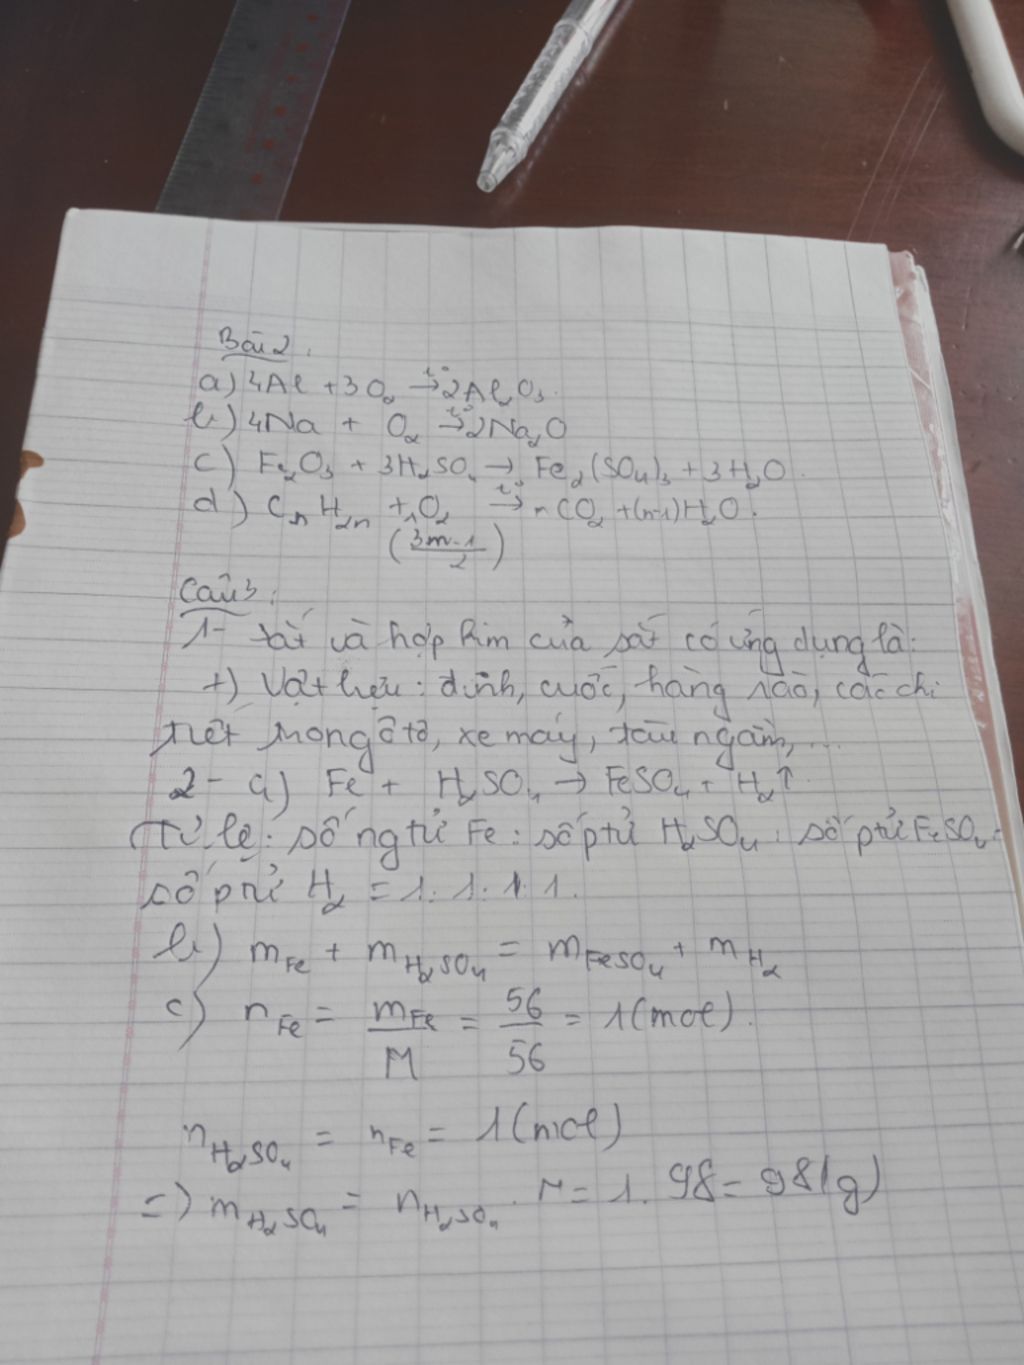 Bài 2.
a) 4Al + 3O₂ →t° 2Al₂O₃.
b) 4Na + O₂ →t° 2Na₂O
c) Fe₂O₃ + 3H₂SO₄ → Fe₂(SO₄)₃ + 3H₂O.
d) CₙH₂ₙ + O₂ →t° nCO₂ + (n-1)H₂O.
(3n-1/2)
Câu 3:
1- Sắt và hợp kim của sắt có ứng dụng là:
+) Vật liệu: đinh, cuốc, hàng rào, các chi
tiết trong ô tô, xe máy, tàu ngầm, ...
2- a) Fe + H₂SO₄ → FeSO₄ + H₂↑
Tỉ lệ: số ng tử Fe : số p tử H₂SO₄ : số p tử FeSO₄ :
số p tử H₂ = 1:1:1:1.
b) mFe + mH₂SO₄ = mFeSO₄ + mH₂
c) nFe = mFe/M = 56/56 = 1(mol).
nH₂SO₄ = nFe = 1(mol)
=> mH₂SO₄ = nH₂SO₄ . M = 1. 98 = 98(g)